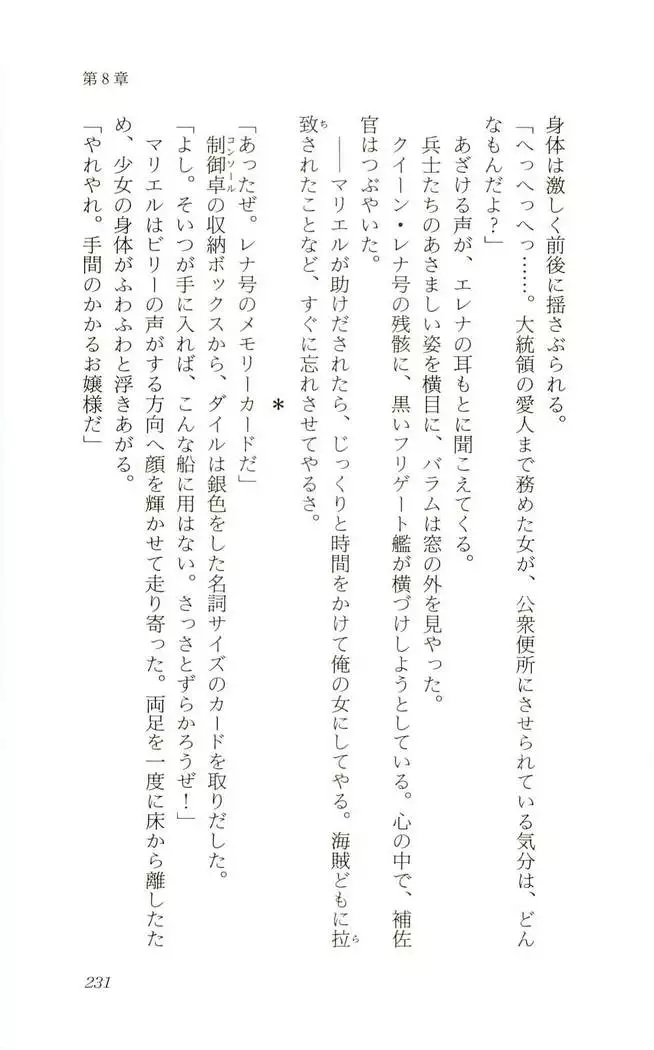 第8章
身体は激しく前後に揺さぶられる。
「へっへっへっ……。大統領の愛人まで務めた女が、公衆便所にさせられている気分は、どん
なもんだよ?」
あざける声が、エレナの耳もとに聞こえてくる。
兵士たちのあさましい姿を横目に、バラムは窓の外を見やった。
クイーン・レナ号の残骸に、黒いフリゲート艦が横づけしようとしている。心の中で、補佐
官はつぶやいた。
――マリエルが助けだされたら、じっくりと時間をかけて俺の女にしてやる。海賊どもに拉
致されたことなど、すぐに忘れさせてやるさ。
*
「あったぜ。レナ号のメモリーカードだ」
制御卓の収納ボックスから、ダイルは銀色をした名詞サイズのカードを取りだした。
「よし。そいつが手に入れば、こんな船に用はない。さっさとずらかろうぜ!」
マリエルはビリーの声がする方向へ顔を輝かせて走り寄った。両足を一度に床から離したた
め、少女の身体がふわふわと浮きあがる。
「やれやれ。手間のかかるお嬢様だ」
231